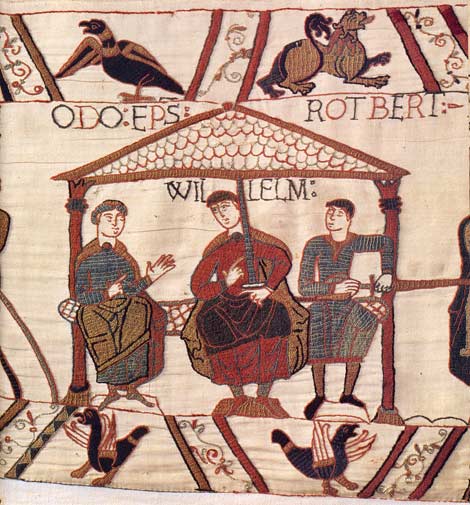 ODO: EPS: ROTBERT:-
WILLELM: